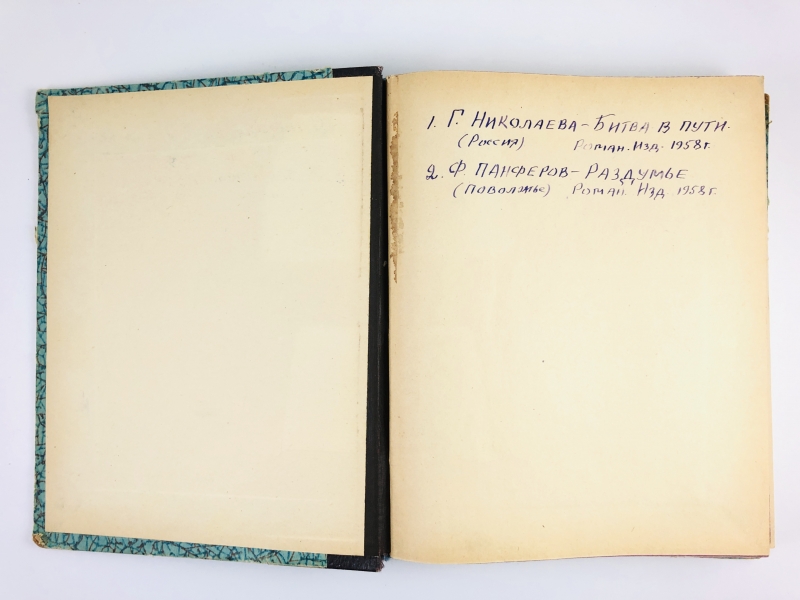 1. Г. Николаева - Битва в пути.
(Россия) Роман. Изд. 1958 г.
2. Ф. Панферов - Раздумье
(Поволжье) Роман. Изд 1958 г.